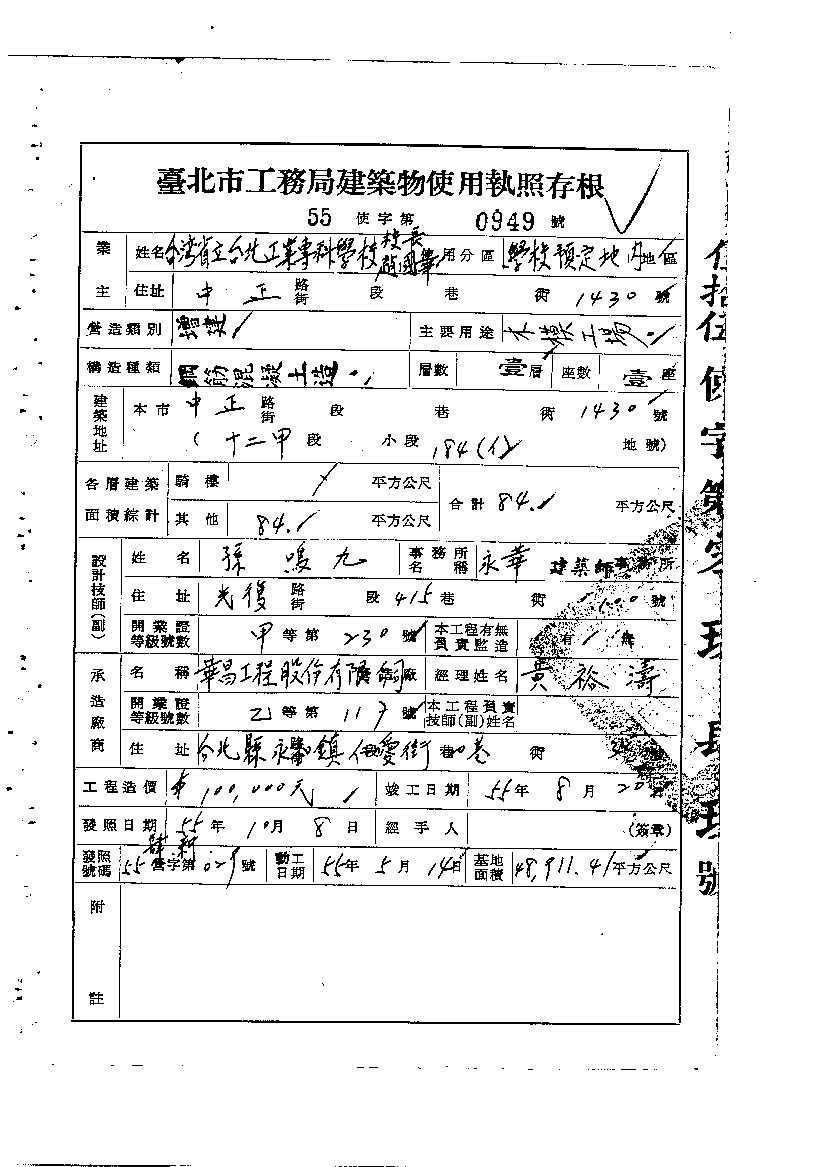 臺北市工務局建築物使用執照存根
55 使字第 0949 號
業主 姓名 台湾省立台北工業專科學校 校長 趙國華 用分區 學校預定地內地區
住址 中正 路街 段 巷 街 1430 號
營造類別 增建 主要用途 木模工場
構造種類 鋼筋混凝土造 層數 壹層 座數 壹座
建築地址 本市 中正 路街 段 巷 街 1430 號
( 十二甲 段 小段 184(1) 地號)
各層建築面積綜計 騎樓 / 平方公尺 合計 84. 平方公尺
其他 84. 平方公尺
設計技師(副) 姓名 孫鳴九 事務所名稱 永華 建築師事務所
住址 光復 路街 段 415 巷 街 號
開業證等級號數 甲等第 230 號 本工程有無負責監造 有 無
承造廠商 名稱 華昌工程股份有限 廠 經理姓名 黃裕濤
開業證等級號數 乙等第 117 號 本工程負責技師(副)姓名
住址 台北縣永和鎮仁愛街 巷 街
工程造價 100,000元 竣工日期 55年 8月 20
發照日期 55年 10月 8日 經手人 (簽章)
發照號碼 55 營字第 029 號 動工日期 55年 5月 14日 基地面積 48,911.41 平方公尺
附註
伍拾伍使字第零玖肆玖號